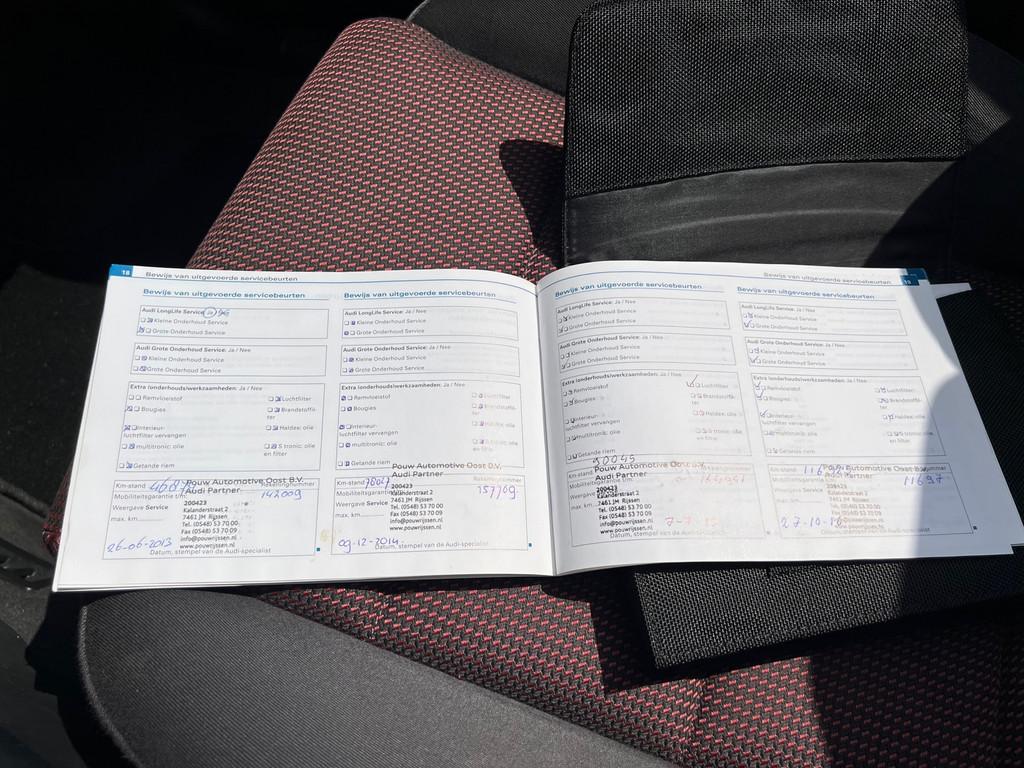 18 Bewijs van uitgevoerde servicebeurten
Bewijs van uitgevoerde servicebeurten
Audi LongLife Service: Ja / Nee
Kleine Onderhoud Service
Grote Onderhoud Service
Audi Grote Onderhoud Service: Ja / Nee
Kleine Onderhoud Service
Grote Onderhoud Service
Extra (onderhouds)werkzaamheden: Ja / Nee
Remvloeistof
Luchtfilter
Bougies
Brandstoffil-
ter
Interieur-
luchtfilter vervangen
Haldex: olie
multitronic: olie
S tronic: olie
en filter
Getande riem
Km-stand
Pouw Automotive Oost B.V.
Audi Partner
Mobiliteitsgarantie t/m:
142009
200423
Weergave Service
Kalanderstraat 2
7461 JM Rijssen
max. km
Tel. (0548) 53 70 00
Fax (0548) 53 70 09
info@pouwrijssen.nl
www.pouwrijssen.nl
26-06-2013
Datum, stempel van de Audi-specialist
Bewijs van uitgevoerde servicebeurten
Audi LongLife Service: Ja / Nee
Kleine Onderhoud Service
Grote Onderhoud Service
Audi Grote Onderhoud Service: Ja / Nee
Kleine Onderhoud Service
Grote Onderhoud Service
Extra (onderhouds)werkzaamheden: Ja / Nee
Remvloeistof
Luchtfilter
Bougies
Brandstoffil-
ter
Interieur-
luchtfilter vervangen
Haldex: olie
multitronic: olie
S tronic: olie
en filter
Getande riem
Pouw Automotive Oost B.V.
Km-stand
Audi Partner
Mobiliteitsgarantie
157769
200423
Weergave Service
Kalanderstraat 2
7461 JM Rijssen
max. km
Tel. (0548) 53 70 00
Fax (0548) 53 70 09
info@pouwrijssen.nl
www.pouwrijssen.nl
09-12-2014
Datum, stempel van de Audi-specialist
Bewijs van uitgevoerde servicebeurten
Bewijs van uitgevoerde servicebeurten
Audi LongLife Service: Ja / Nee
Kleine Onderhoud Service
Grote Onderhoud Service
Audi Grote Onderhoud Service: Ja / Nee
Kleine Onderhoud Service
Grote Onderhoud Service
Extra (onderhouds)werkzaamheden: Ja / Nee
Remvloeistof
Luchtfilter
Bougies
Brandstoffil-
ter
Interieur-
luchtfilter vervangen
Haldex: olie
multitronic: olie
S tronic: olie
en filter
Getande riem
90045
Pouw Automotive Oost B.V.
Audi Partner
Mobiliteitsgarantie
200423
Weergave
Kalanderstraat 2
7461 JM Rijssen
max. km
Tel. (0548) 53 70 00
Fax (0548) 53 70 09
info@pouwrijssen.nl
www.pouwrijssen.nl
Datum, stempel van de Audi-specialist
Bewijs van uitgevoerde servicebeurten
Audi LongLife Service: Ja / Nee
Kleine Onderhoud Service
Grote Onderhoud Service
Audi Grote Onderhoud Service: Ja / Nee
Kleine Onderhoud Service
Grote Onderhoud Service
Extra (onderhouds)werkzaamheden: Ja / Nee
Remvloeistof
Luchtfilter
Bougies
Brandstoffil-
ter
Interieur-
luchtfilter vervangen
Haldex: olie
multitronic: olie
S tronic: olie
en filter
Getande riem
Km-stand
Pouw Automotive Oost B.V.
Audi Partner
Mobiliteitsgarantie
11697
Weergave Service
max. km
27-10-16